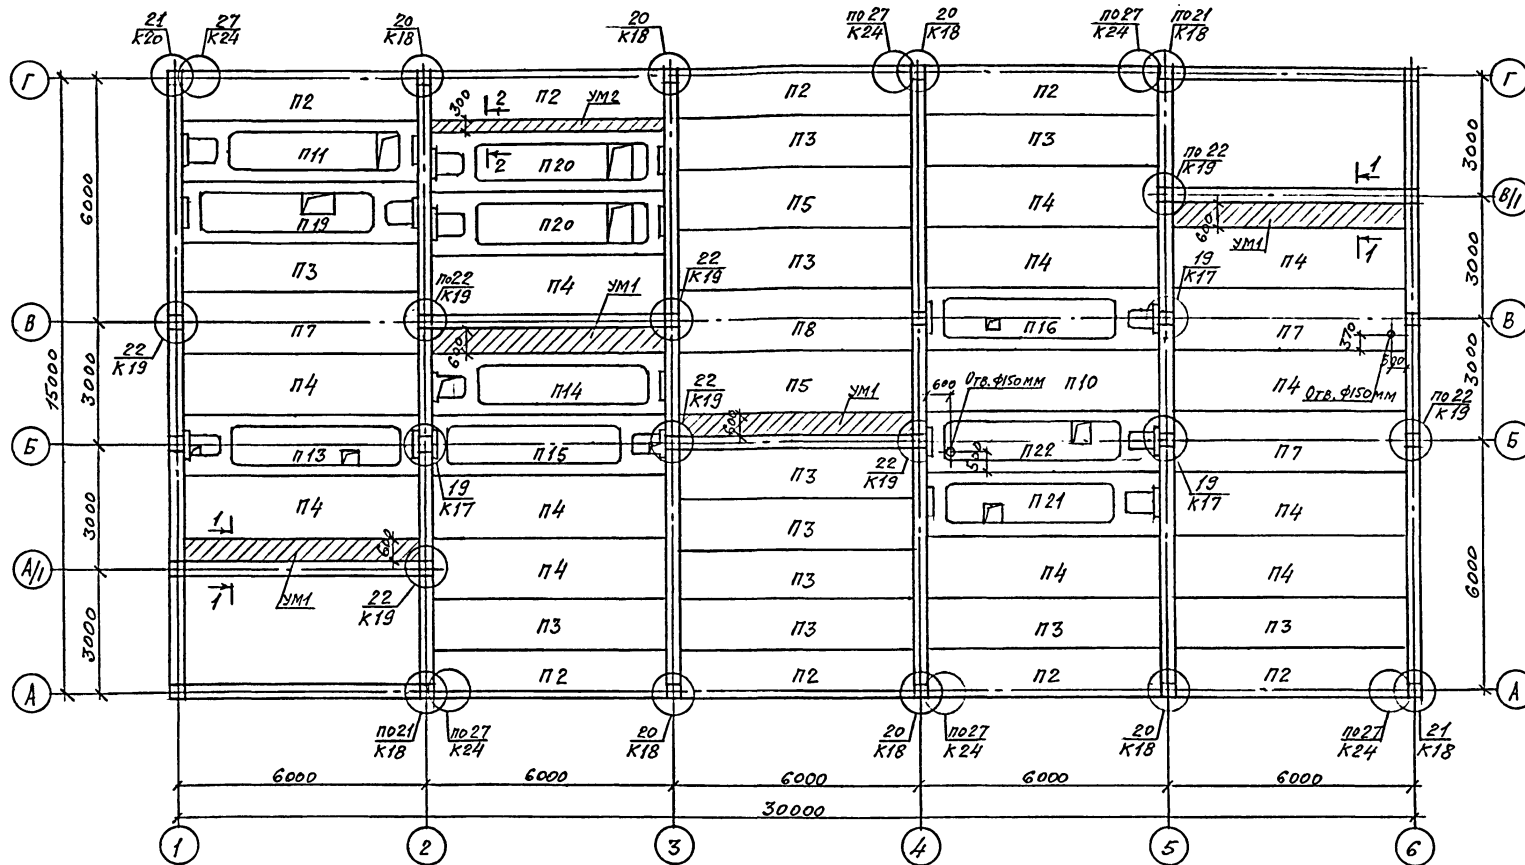 21
К20
27
К24
20
К18
20
К18
по27
К24
20
К18
по27
К24
по21
К18
Г
Г
П2
300
2
П2
УМ2
П2
П2
П11
2
П20
П3
П3
по22
К19
1
3000
6000
П19
П20
П5
П4
600
УМ1
1
В/1
П3
по22
К19
П4
УМ1
22
К19
П3
П4
19
К17
П4
3000
В
П7
600
П8
П16
П7
370
500
В
22
К19
15000
3000
П4
П14
22
К19
П5
600
УМ1
600
Отв. ф150мм
П10
П4
Отв. ф150мм
3000
по22
К19
Б
П13
П15
П3
22
К19
500
П22
П7
Б
19
К17
П21
19
К17
3000
1
П4
600
П4
П3
П4
А/1
1
УМ1
22
К19
П4
П3
П4
П4
6000
3000
П3
П3
П3
П3
А
П2
П2
П2
П2
А
по21
К18
по27
К24
20
К18
20
К18
по27
К24
20
К18
по27
К24
21
К18
6000
6000
6000
6000
6000
30000
1
2
3
4
5
6